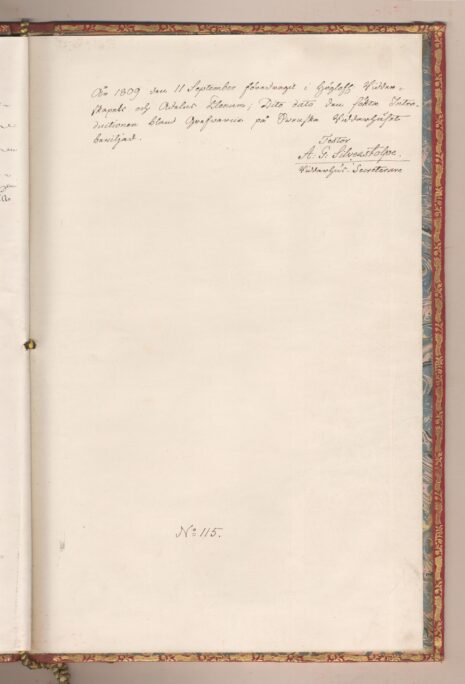 År 1809 den 11 September föredraget i Högloft. Ridder-
skapets och Adelns Plenum; Dito dato den sökta Intro-
ductionen bland Grefvarne på Swenska Ridderhuset
beviljad.
Testor
A. G. Silverstolpe.
Ridderhus-Secreterare
No 115.